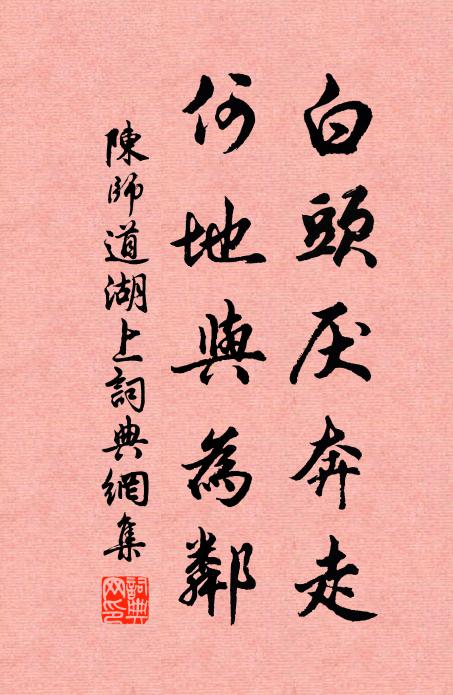 白頭厌奔走
何地與為鄰
陳師道湖上詞典網集
詞典网印